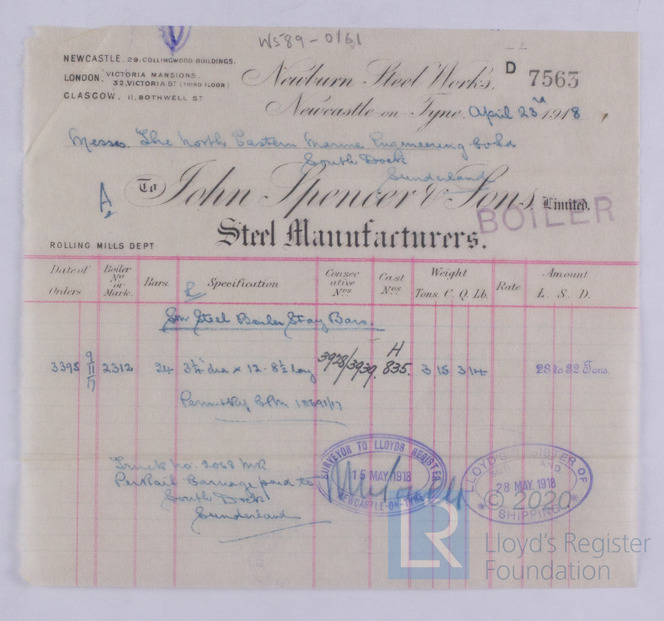 WS89-0161
NEWCASTLE, 29, COLLINGWOOD BUILDINGS.
LONDON, VICTORIA MANSIONS,
32, VICTORIA ST (THIRD FLOOR)
GLASGOW, 11, BOTHWELL ST
Newburn Steel Works,
D 7563
Newcastle on Tyne, April 23rd 1918
Messrs. The North Eastern Marine Engineering Co Ld
South Dock
Sunderland
A
To John Spencer & Sons, Limited.
BOILER
Steel Manufacturers.
ROLLING MILLS DEPT
Date of Orders
Boiler No or Mark.
Bars.
Specification
Consecutive Nos
Cast Nos
Weight
Tons. C. Q. Lb.
Rate
Amount
L. S. D.
Sm Steel Boiler Stay Bars.
3395 9/11/17 2312 24 3¼" dia x 12-8½ long 3928/3939 H 835. 3 15 3 14 28 to 32 Tons.
Truck No. 2068 MR
Per Rail Carriage paid to
South Dock
Sunderland
SURVEYOR TO LLOYDS REGISTER
15 MAY 1918
NEWCASTLE-ON-TYNE
LLOYD'S REGISTER OF
AND
28 MAY 1918
© 2020
SHIPPING
LR
Lloyd's Register
Foundation